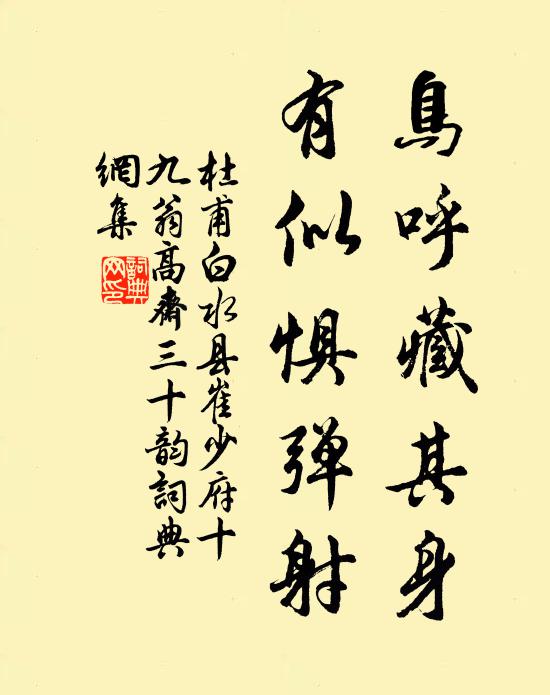 鳥呼藏其身
有似惧弹射
杜甫白水县崔少府十
九翁高齋三十韵詞典
網集
詞典网印